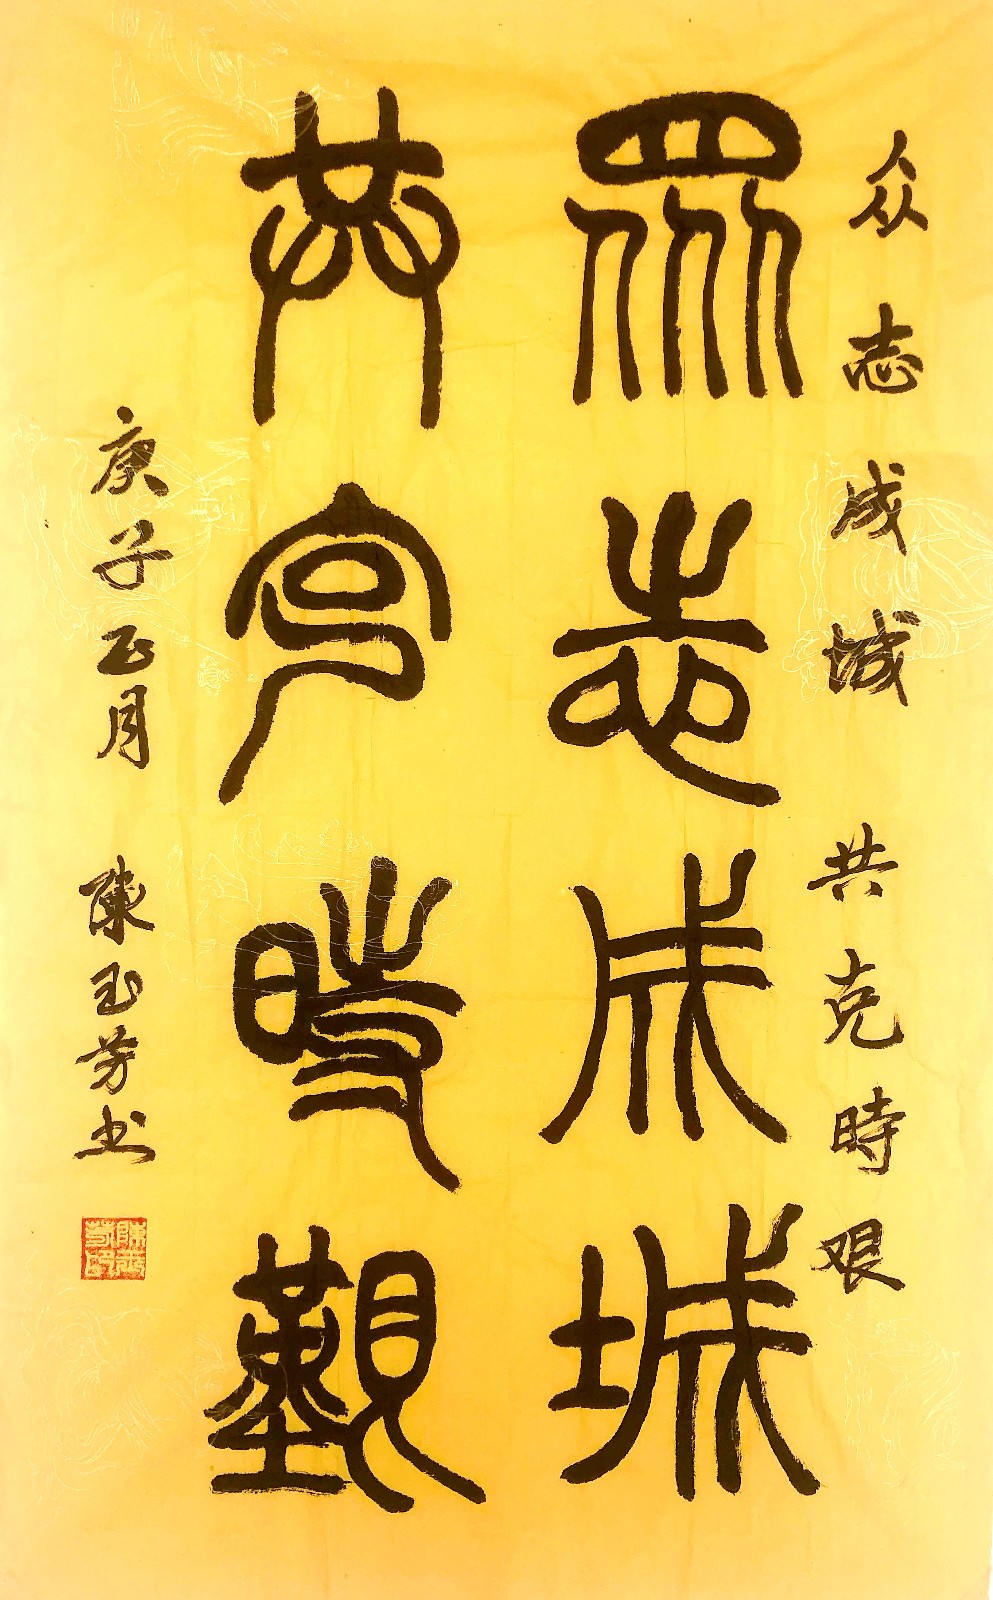 众志成城 共克時艰
眾志成城
共克時艱
庚子正月 陳玉芳书
陳玉芳印